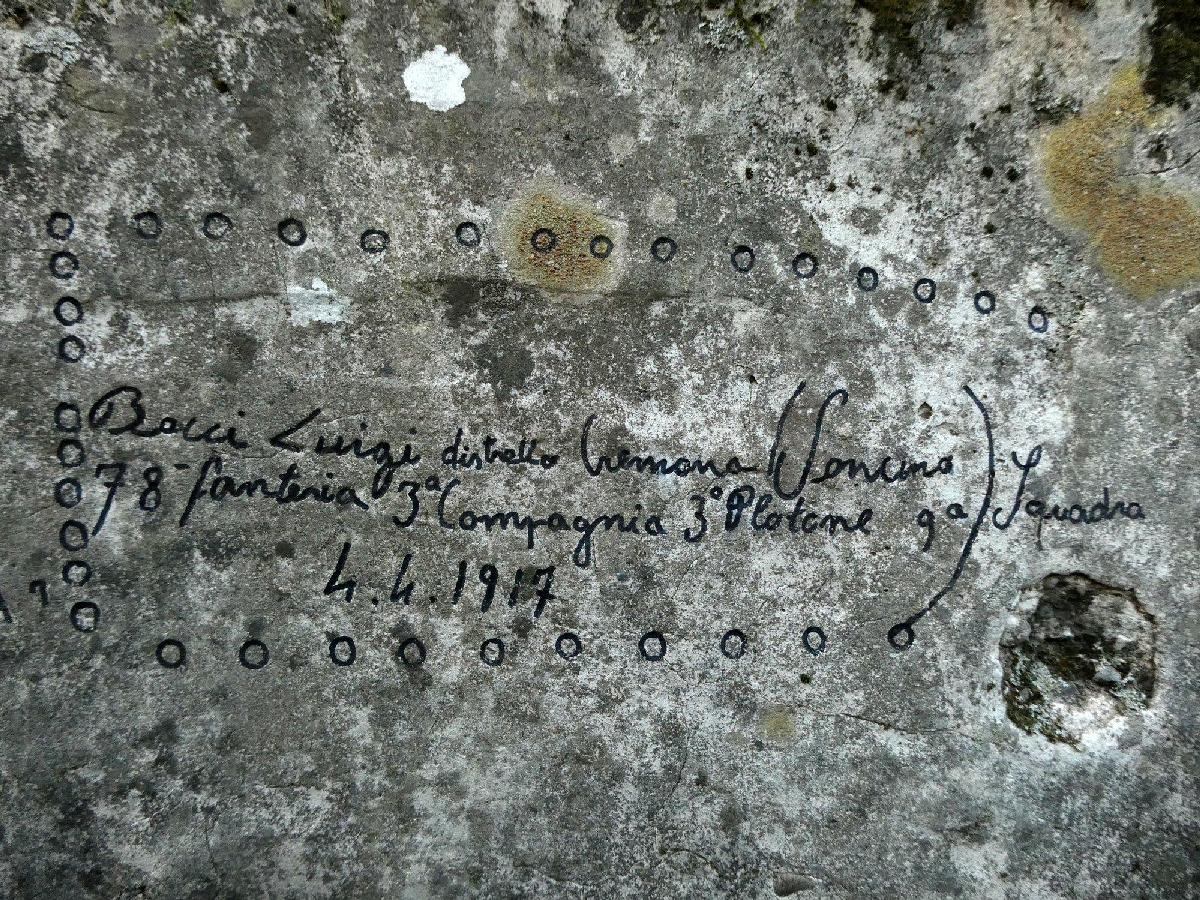 Bocci Luigi distretto Cremona (Soncino)
78ª fanteria 3ª Compagnia 3° Plotone 9ª Squadra
4.4.1917